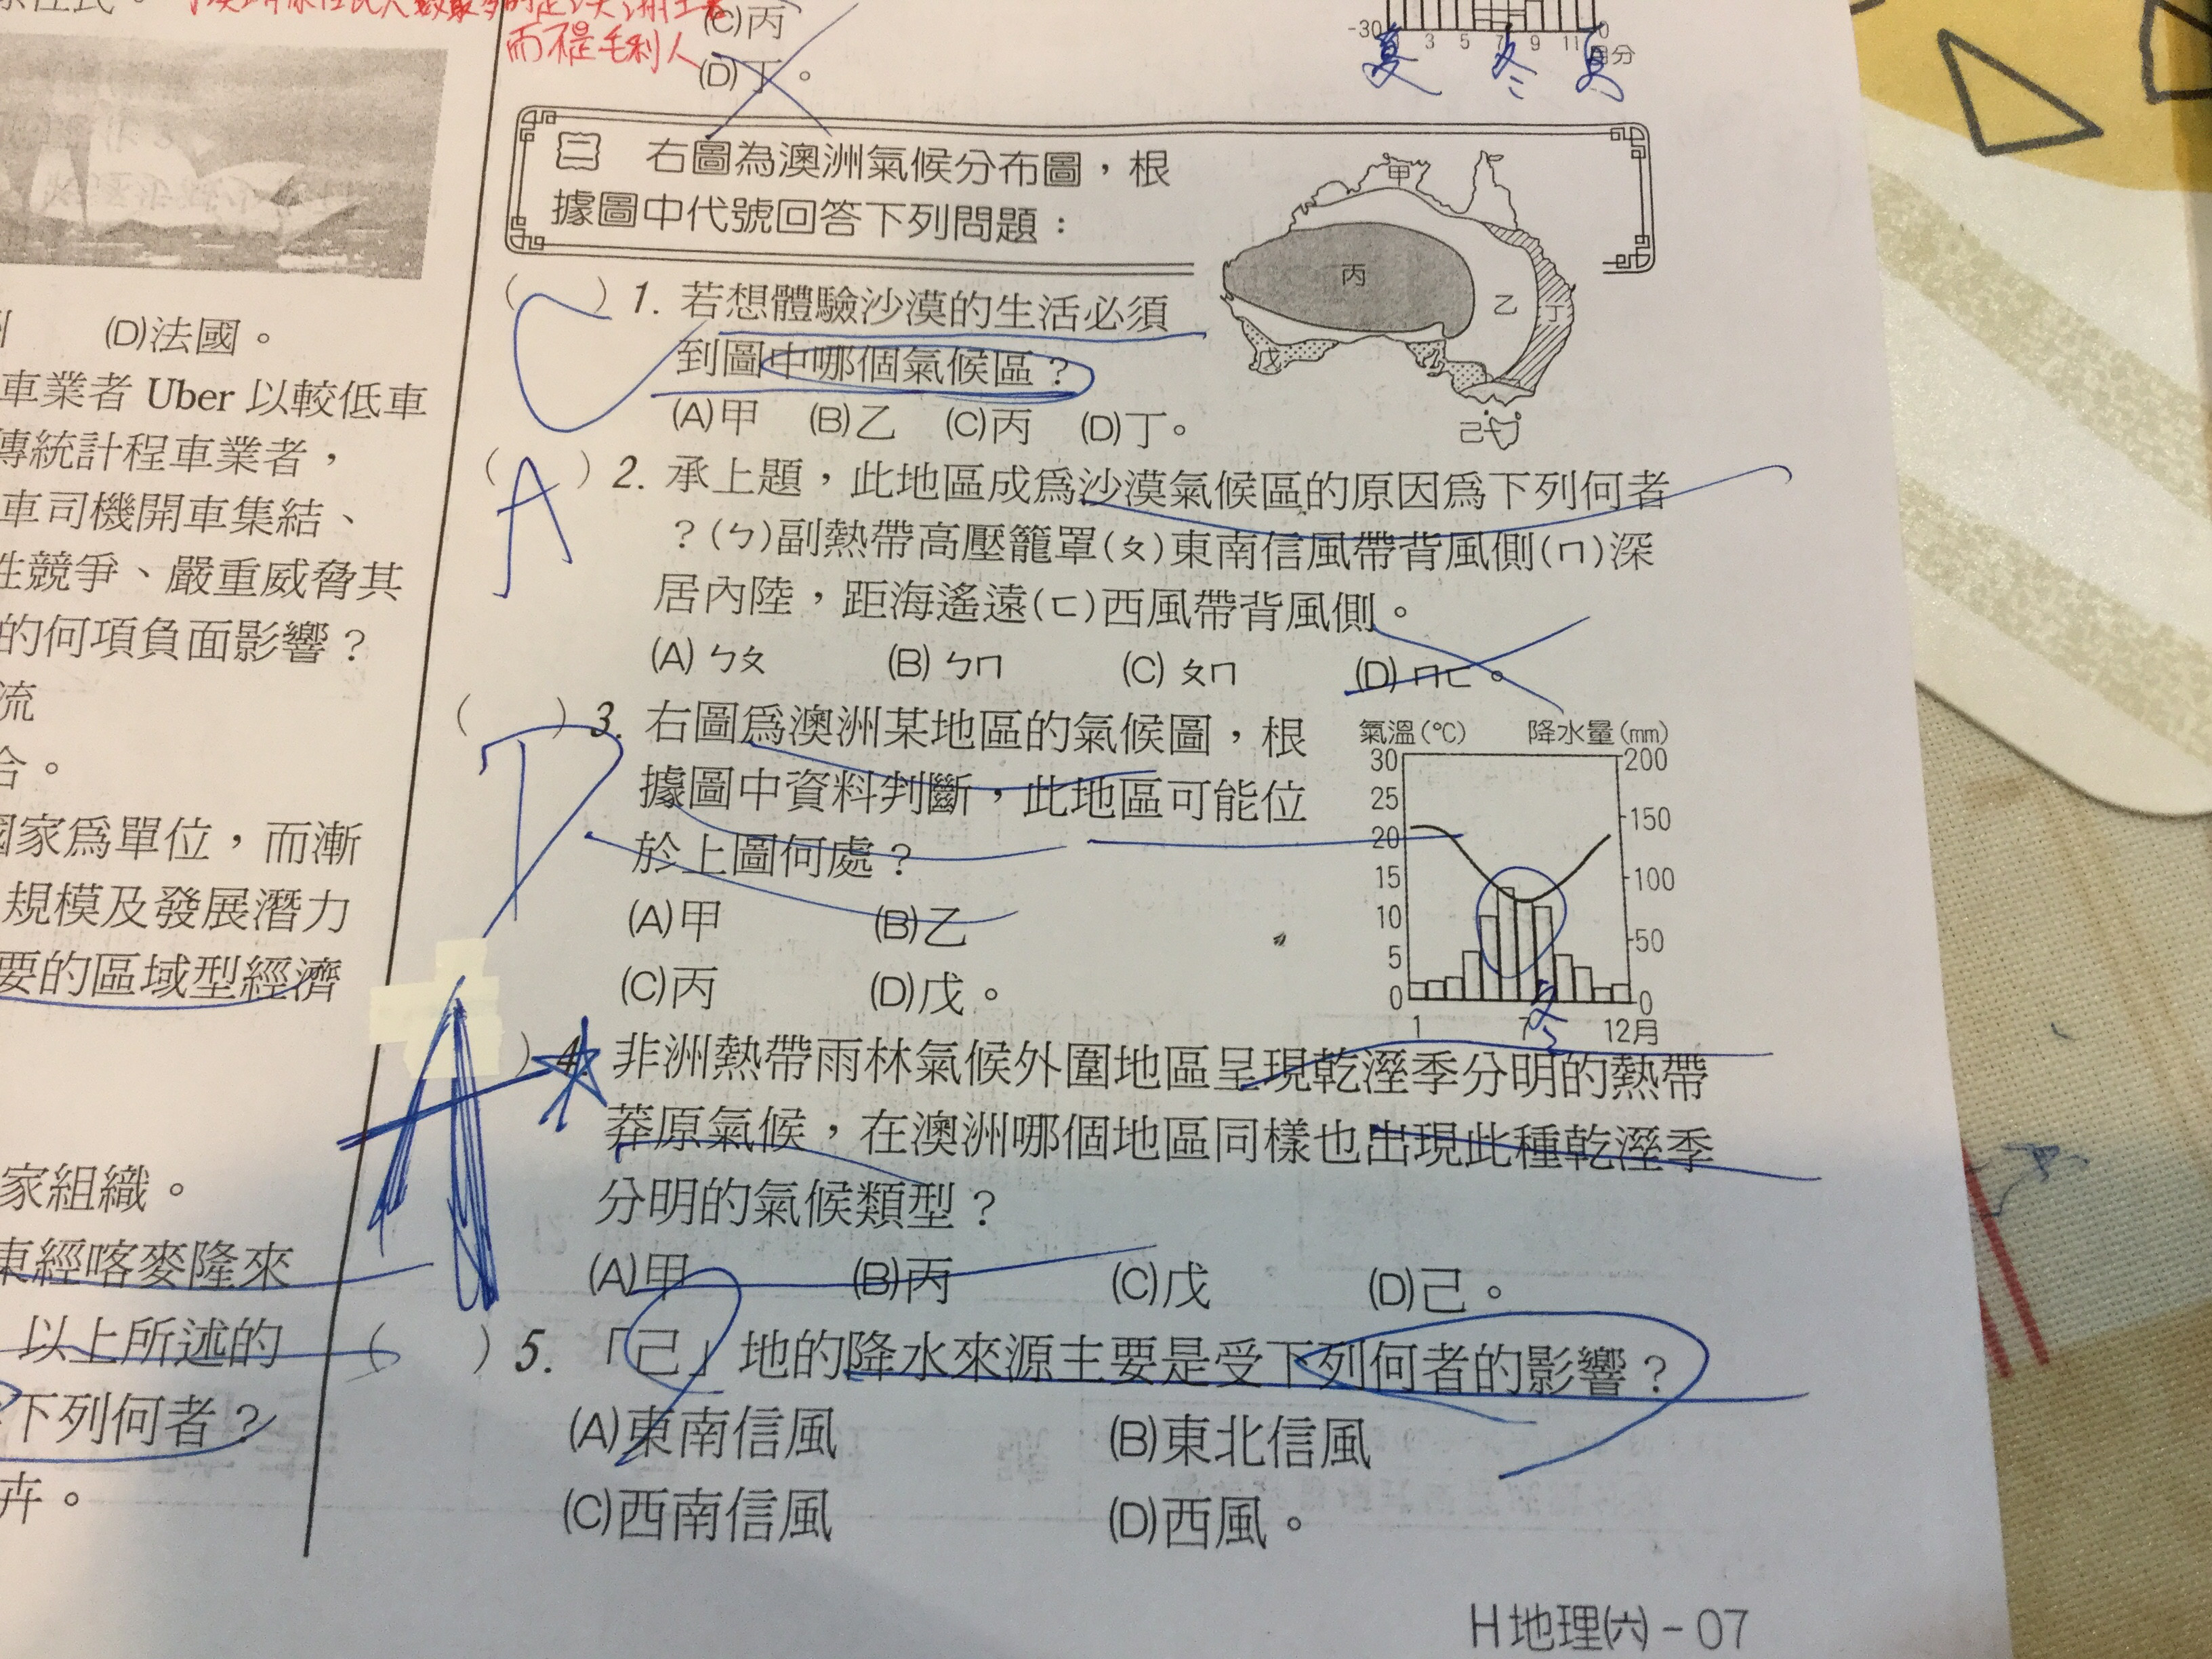 而不是毛利人
(D)法國。
車業者 Uber 以較低車
傳統計程車業者，
車司機開車集結、
性競爭、嚴重威脅其
的何項負面影響？
流
合。
國家為單位，而漸
規模及發展潛力
要的區域型經濟
家組織。
東經喀麥隆來
以上所述的
下列何者？
卉。
(C)丙
(D)丁。
-30
3 5 7 9 11
0
月分
夏 冬 夏
二 右圖為澳洲氣候分布圖，根
據圖中代號回答下列問題：
甲
丙
乙
丁
戊
己
( C ) 1. 若想體驗沙漠的生活必須
到圖中哪個氣候區？
(A)甲 (B)乙 (C)丙 (D)丁。
( A ) 2. 承上題，此地區成為沙漠氣候區的原因為下列何者
？(ㄅ)副熱帶高壓籠罩(ㄆ)東南信風帶背風側(ㄇ)深
居內陸，距海遙遠(ㄈ)西風帶背風側。
(A) ㄅㄆ (B) ㄅㄇ (C) ㄆㄇ (D) ㄇㄈ。
( D ) 3. 右圖為澳洲某地區的氣候圖，根
據圖中資料判斷，此地區可能位
於上圖何處？
(A)甲 (B)乙
(C)丙 (D)戊。
氣溫(℃) 降水量(mm)
30 200
25
20 150
15 100
10
5 50
0 0
1 7 12月
冬
A ) 4. 非洲熱帶雨林氣候外圍地區呈現乾溼季分明的熱帶
莽原氣候，在澳洲哪個地區同樣也出現此種乾溼季
分明的氣候類型？
(A)甲 (B)丙 (C)戊 (D)己。
( ) 5. 「己」地的降水來源主要是受下列何者的影響？
(A)東南信風 (B)東北信風
(C)西南信風 (D)西風。
H地理(六)－07